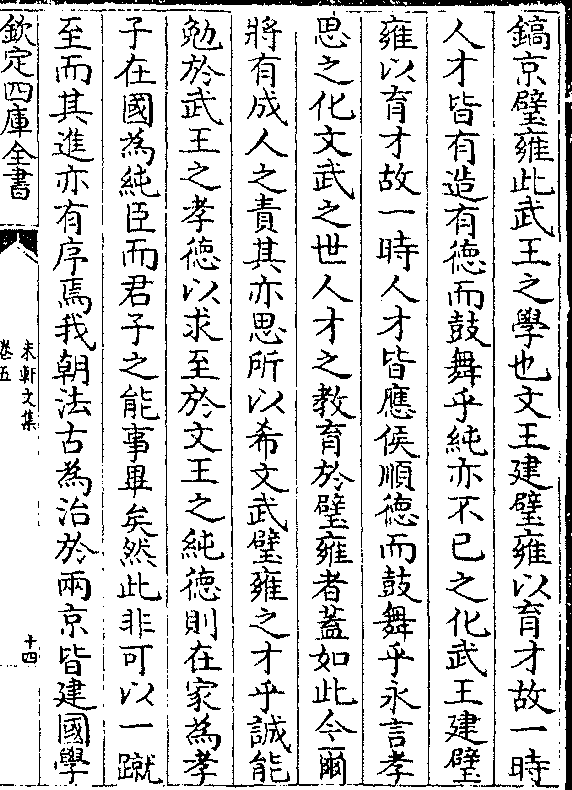 鎬京璧雍此武王之學也文王建璧雍以育才故一時
人才皆有造有德而鼓舞乎純亦不已之化武王建璧
雍以育才故一時人才皆應侯順德而鼓舞乎永言孝
思之化文武之世人才之教育於璧雍者蓋如此今爾
將有成人之責其亦思所以希文武璧雍之才乎誠能
勉於武王之孝德以求至於文王之純德則在家為孝
子在國為純臣而君子之能事畢矣然此非可以一蹴
至而其進亦有序焉我朝法古為治於兩京皆建國學
欽定四庫全書
未軒文集
卷五
十四